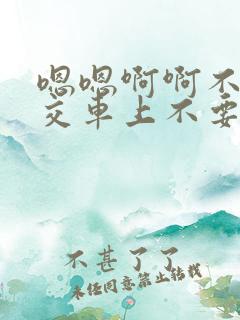 嗯嗯啊啊不
交车上不要
不甚了了
未经同意禁止转载